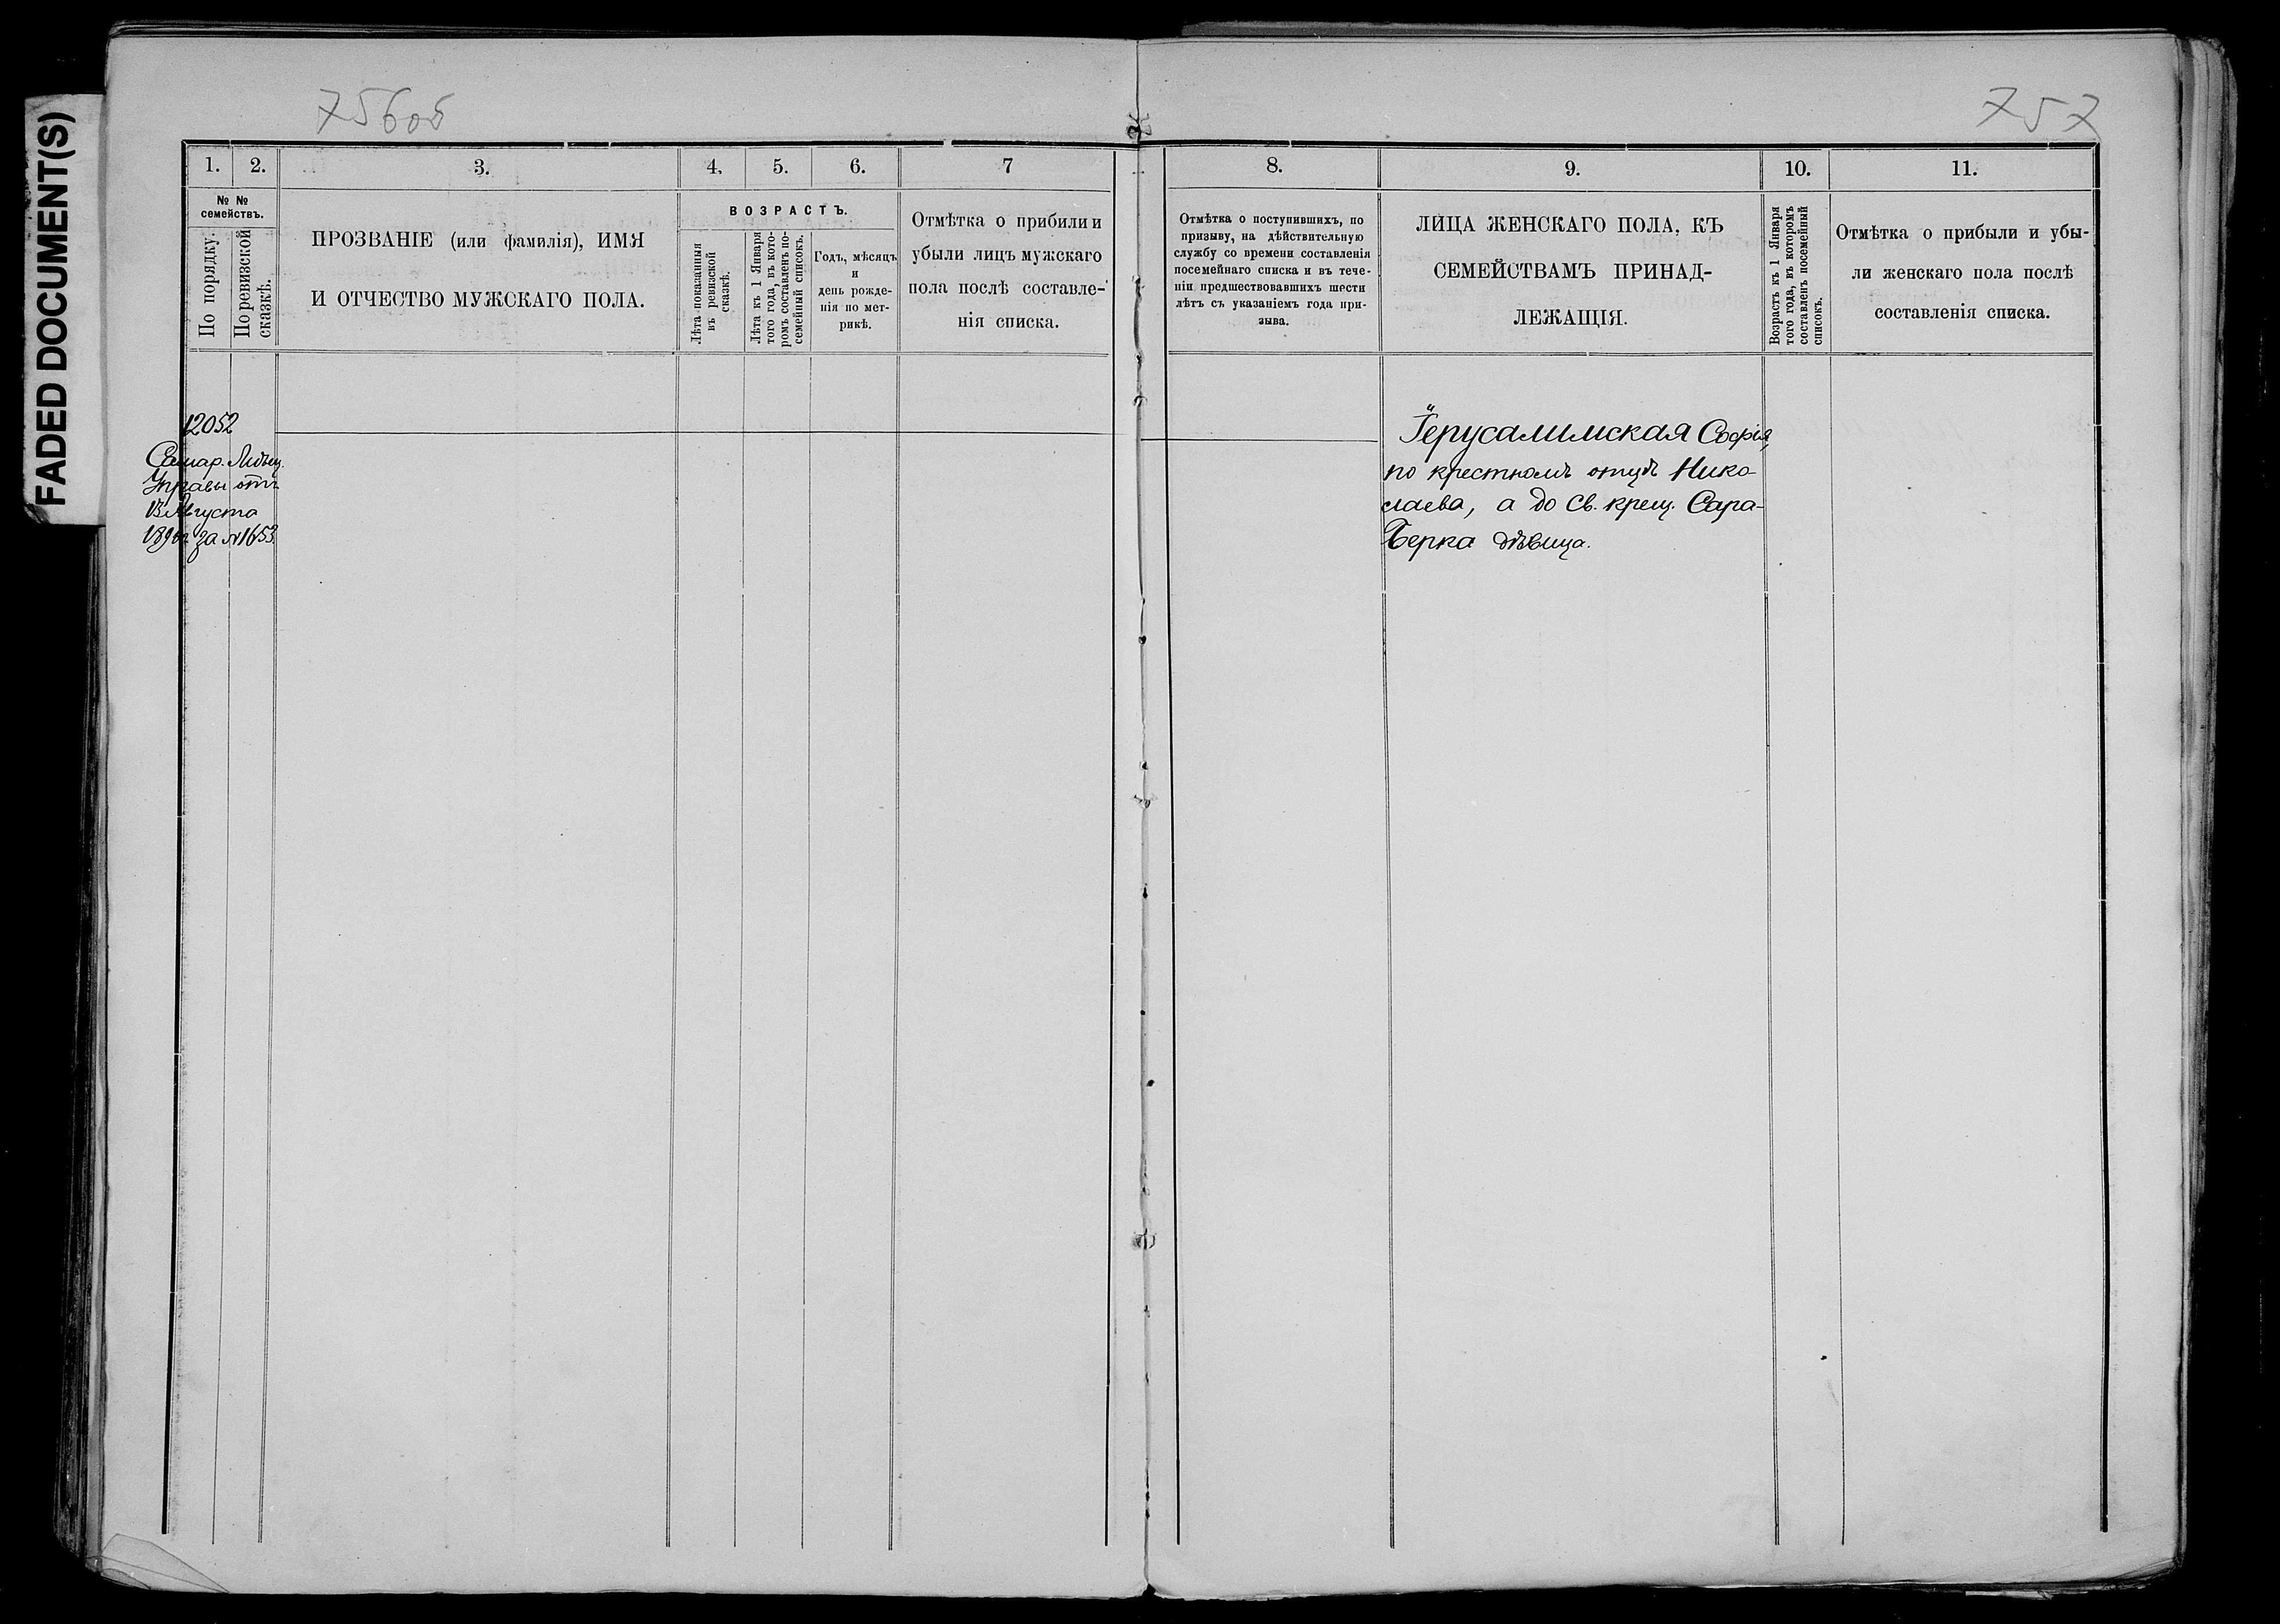 FADED DOCUMENT(S)
756об
757
1. 2. 3. 4. 5. 6. 7
№ №
семействъ.
По порядку.
По ревизской
сказкѣ.
ПРОЗВАНІЕ (или фамилія), ИМЯ
И ОТЧЕСТВО МУЖСКАГО ПОЛА.
ВОЗРАСТЪ.
Лѣта показанныя
въ ревизской
сказкѣ.
Лѣта къ 1 Января
того года, въ кото-
ромъ составленъ по-
семейный списокъ.
Годъ, мѣсяцъ
и
день рожде-
нія по мет-
рикѣ.
Отмѣтка о прибыли и
убыли лицъ мужскаго
пола послѣ составле-
нія списка.
12052
Самар. Мѣщ.
Управы отъ
13 Августа
189 г. за № 1653.
8. 9. 10. 11.
Отмѣтка о поступившихъ, по
призыву, на дѣйствительную
службу со времени составленія
посемейнаго списка и въ тече-
ніи предшествовавшихъ шести
лѣтъ съ указаніемъ года при-
зыва.
ЛИЦА ЖЕНСКАГО ПОЛА, КЪ
СЕМЕЙСТВАМЪ ПРИНАД-
ЛЕЖАЩІЯ.
Возрастъ къ 1 Января
того года, въ которомъ
составленъ посемейный
списокъ.
Отмѣтка о прибыли и убы-
ли женскаго пола послѣ
составленія списка.
Іерусалимская Софія,
по крестномъ отцѣ Нико-
лаева, а до Св. крещ. Сара-
Берка дѣвица.